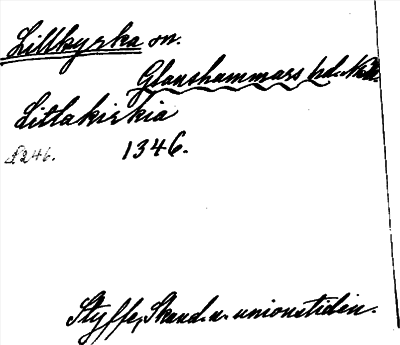 Lillkyrka sn.
Glanshammars hd. Nke.
Litlakirkia
s 246. 1346.
Styffe, Skand. u. unionstiden.